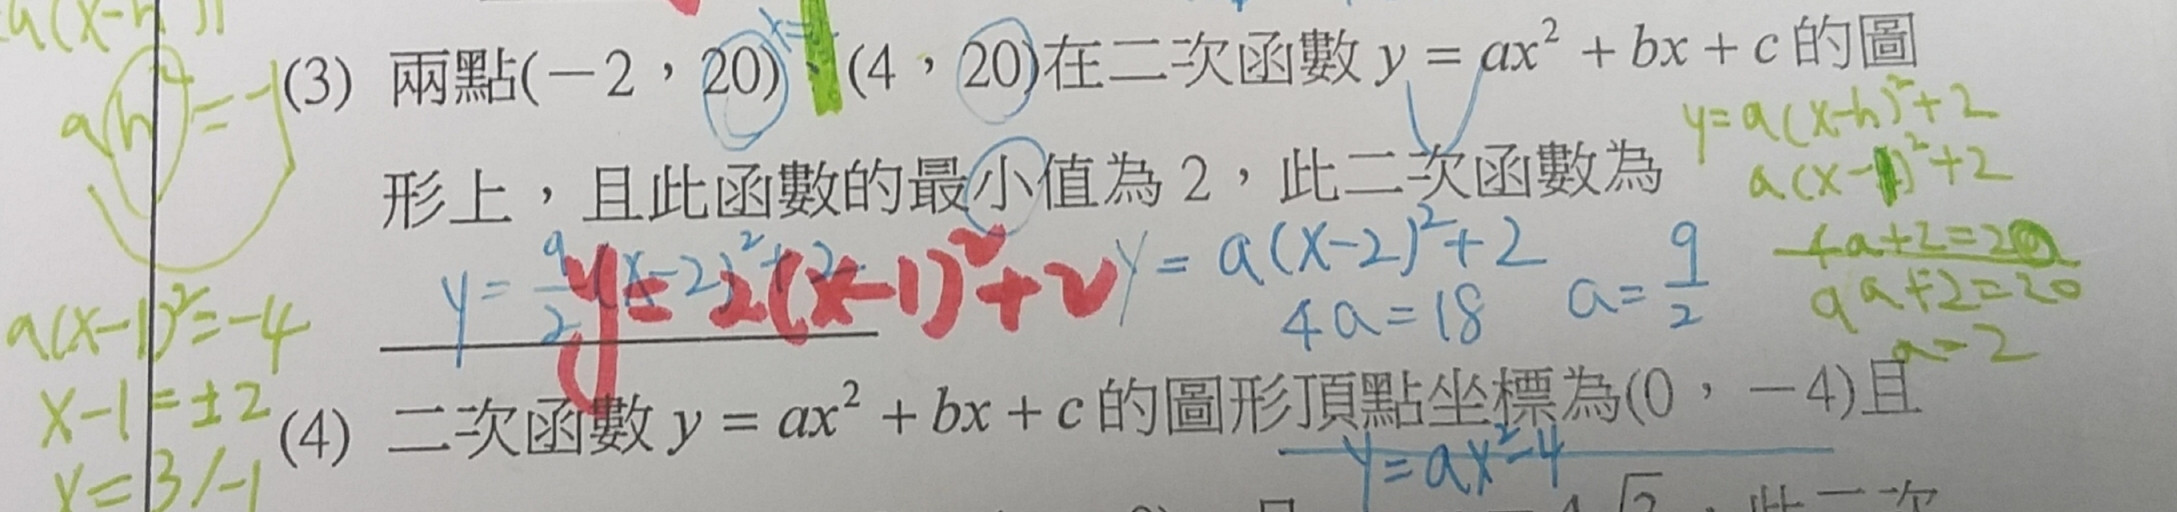 a(x-h
ah²=-1
(3) 兩點(-2，20)、(4，20)在二次函數 y = ax² + bx + c 的圖
x=1
形上，且此函數的最小值為 2，此二次函數為
y=a(x-h)²+2
a(x-1)²+2
4a+2=20
9a+2=20
a=2
y=9/2(x-2)²+2
y=2(x-1)²+2
y=a(x-2)²+2
4a=18
a=9/2
a(x-1)²=-4
x-1=±2
x=3/-1
(4) 二次函數 y = ax² + bx + c 的圖形頂點坐標為(0，-4)且
y=ax²-4
此二次